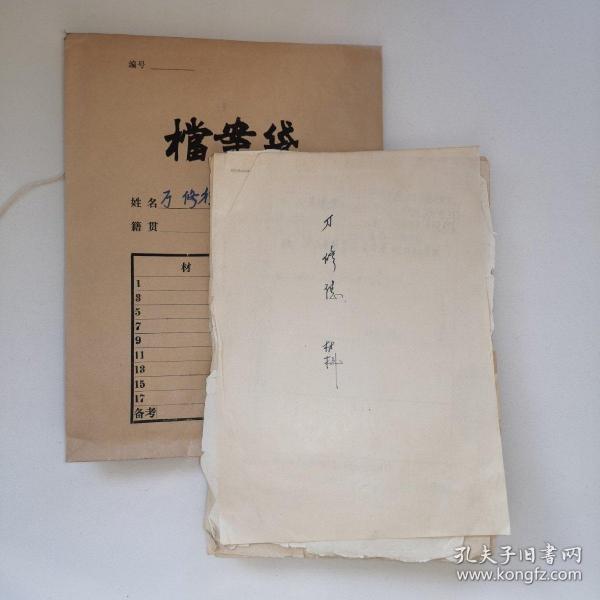 编号
檔案袋
姓名
籍贯
材
1
3
5
7
9
11
13
15
17
备考
修
材料
孔夫子旧书网
www.kongfz.com